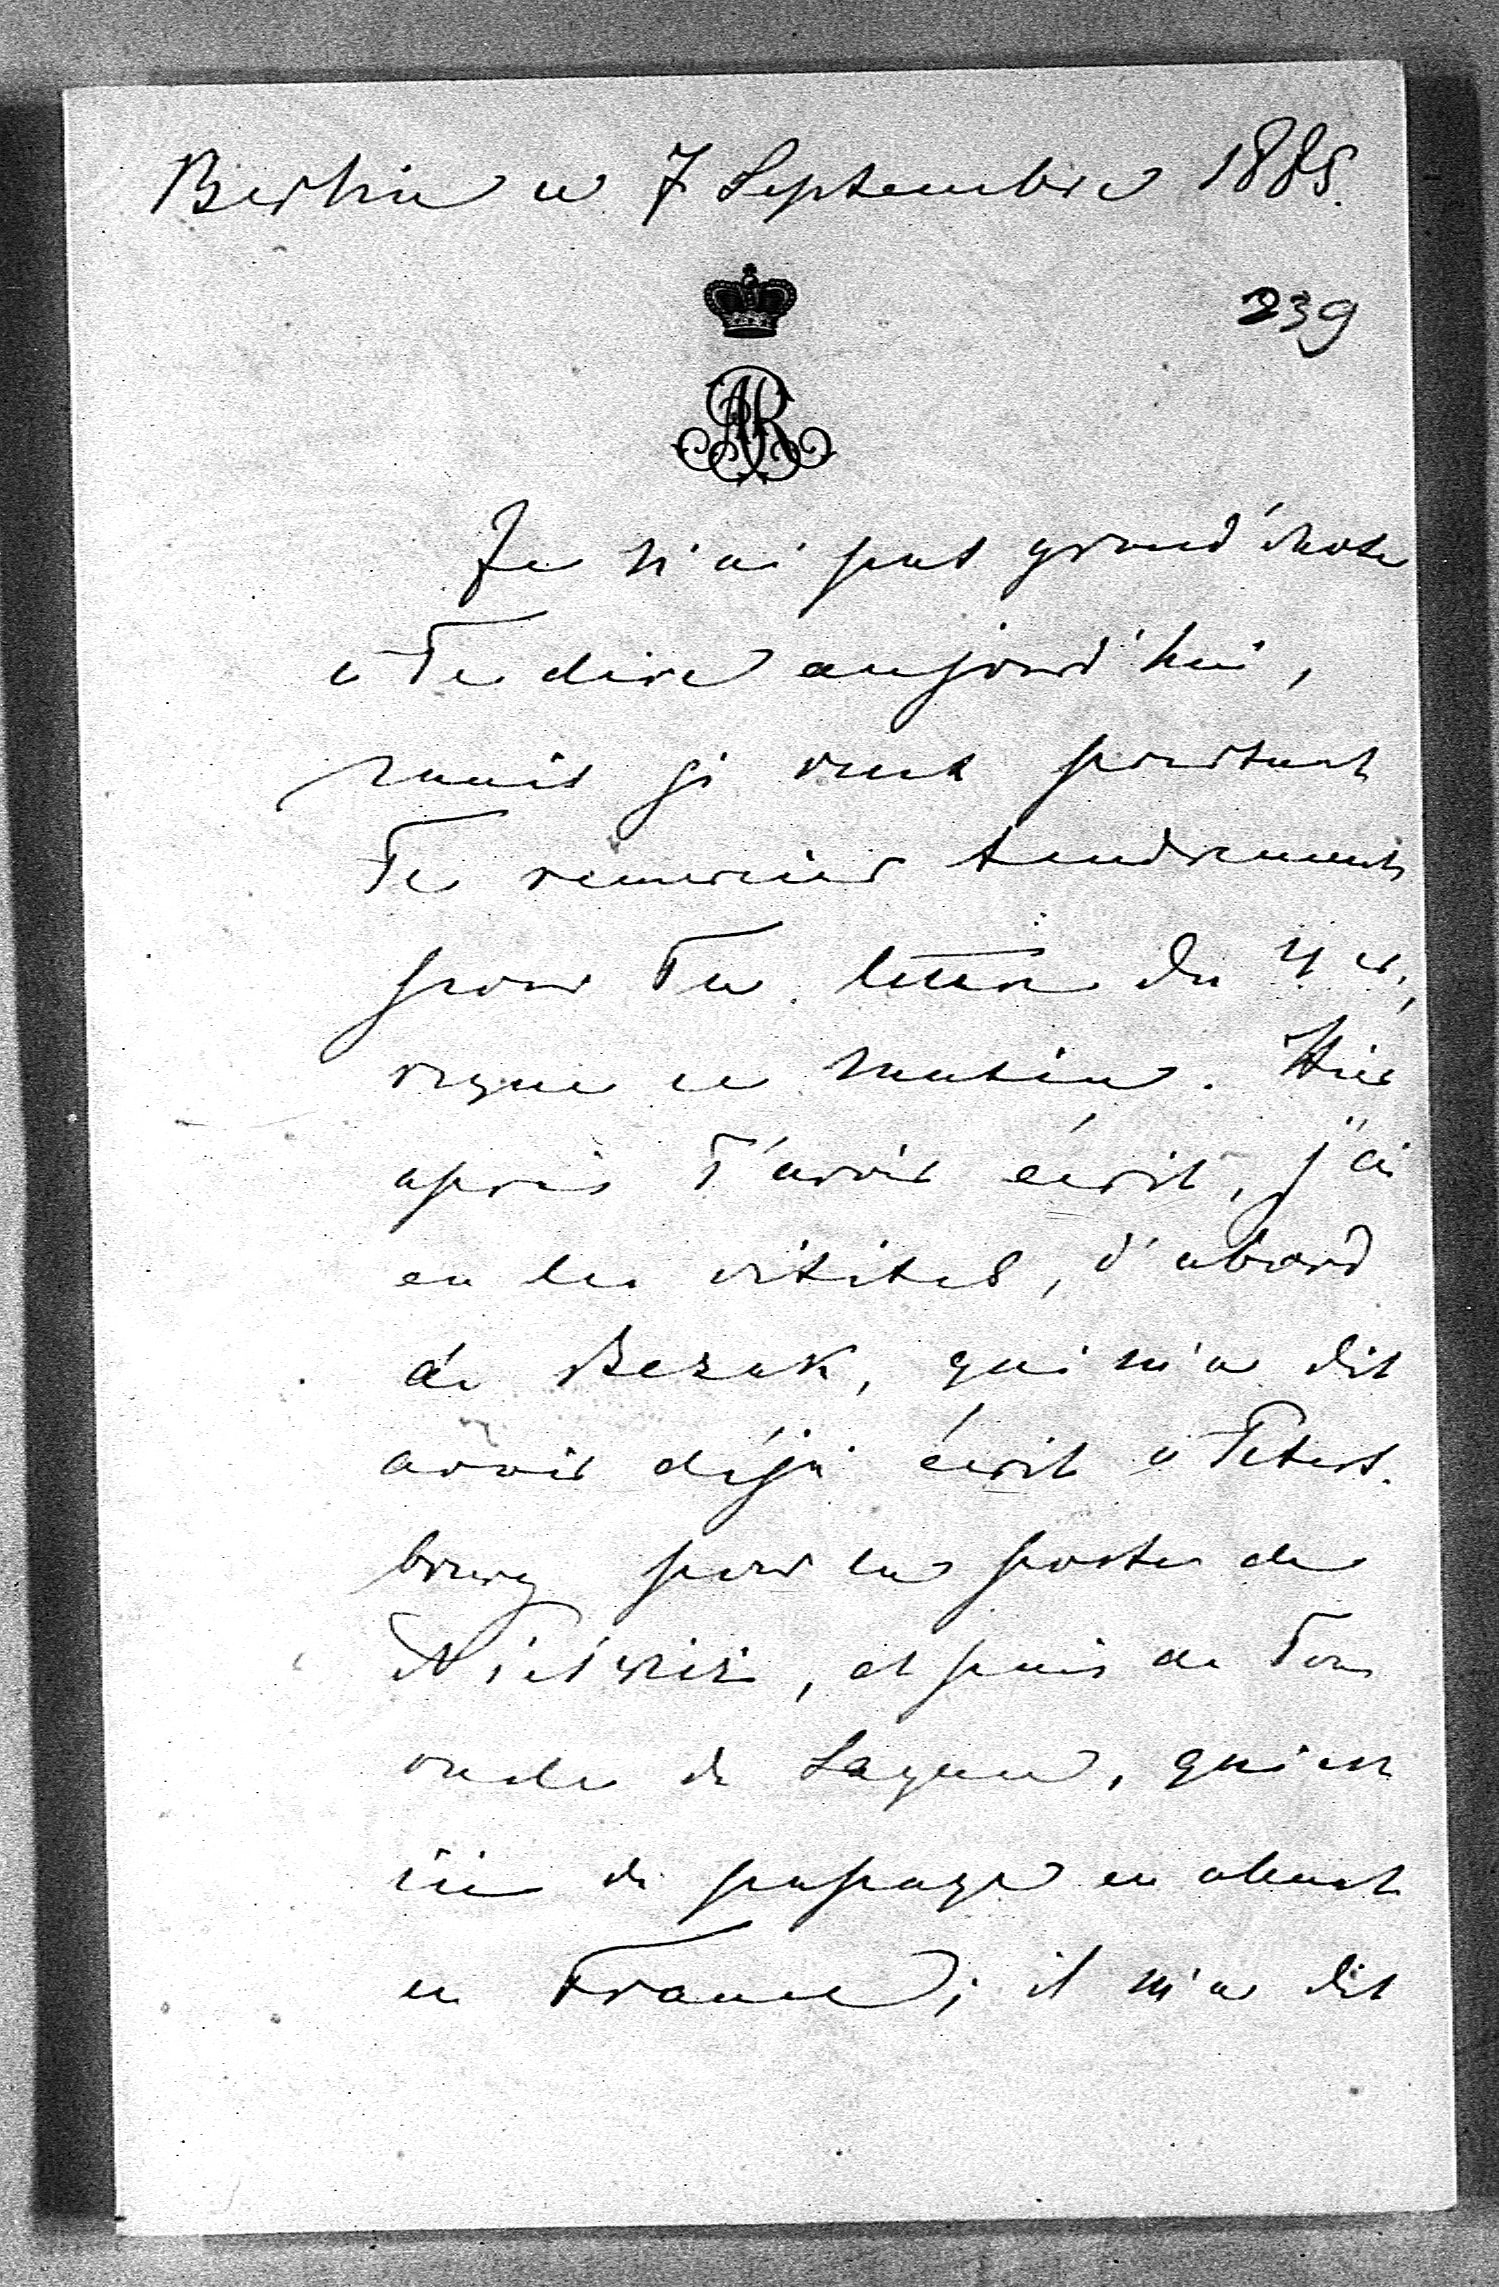 Berlin ce 7 Septembre 1885.
239
AR
Je n'ai pas grand'chose
à Te dire aujourd'hui,
mais je veux pourtant
Te remercier tendrement
pour Ta lettre du 4 ct,
reçue ce matin. Hier
après T'avoir écrit, j'ai
eu les visites, d'abord
de Bezak, qui m'a dit
avoir déjà écrit à Peters-
bourg pour la poste de
Nieśwież, et puis de Ton
oncle de Sagan, qui est
ici de passage en allant
en France; il m'a dit